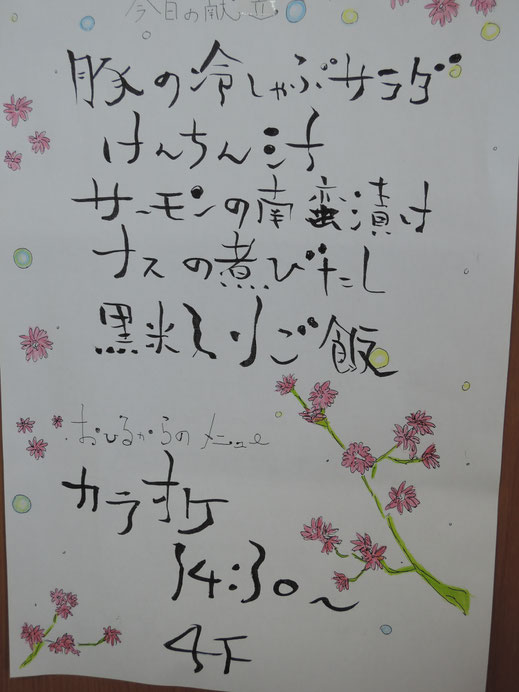 今日の献立
豚の冷しゃぶサラダ
けんちん汁
サーモンの南蛮漬け
ナスの煮びたし
黒米入りご飯
おひるからのメニュー
カラオケ
14:30〜
4F